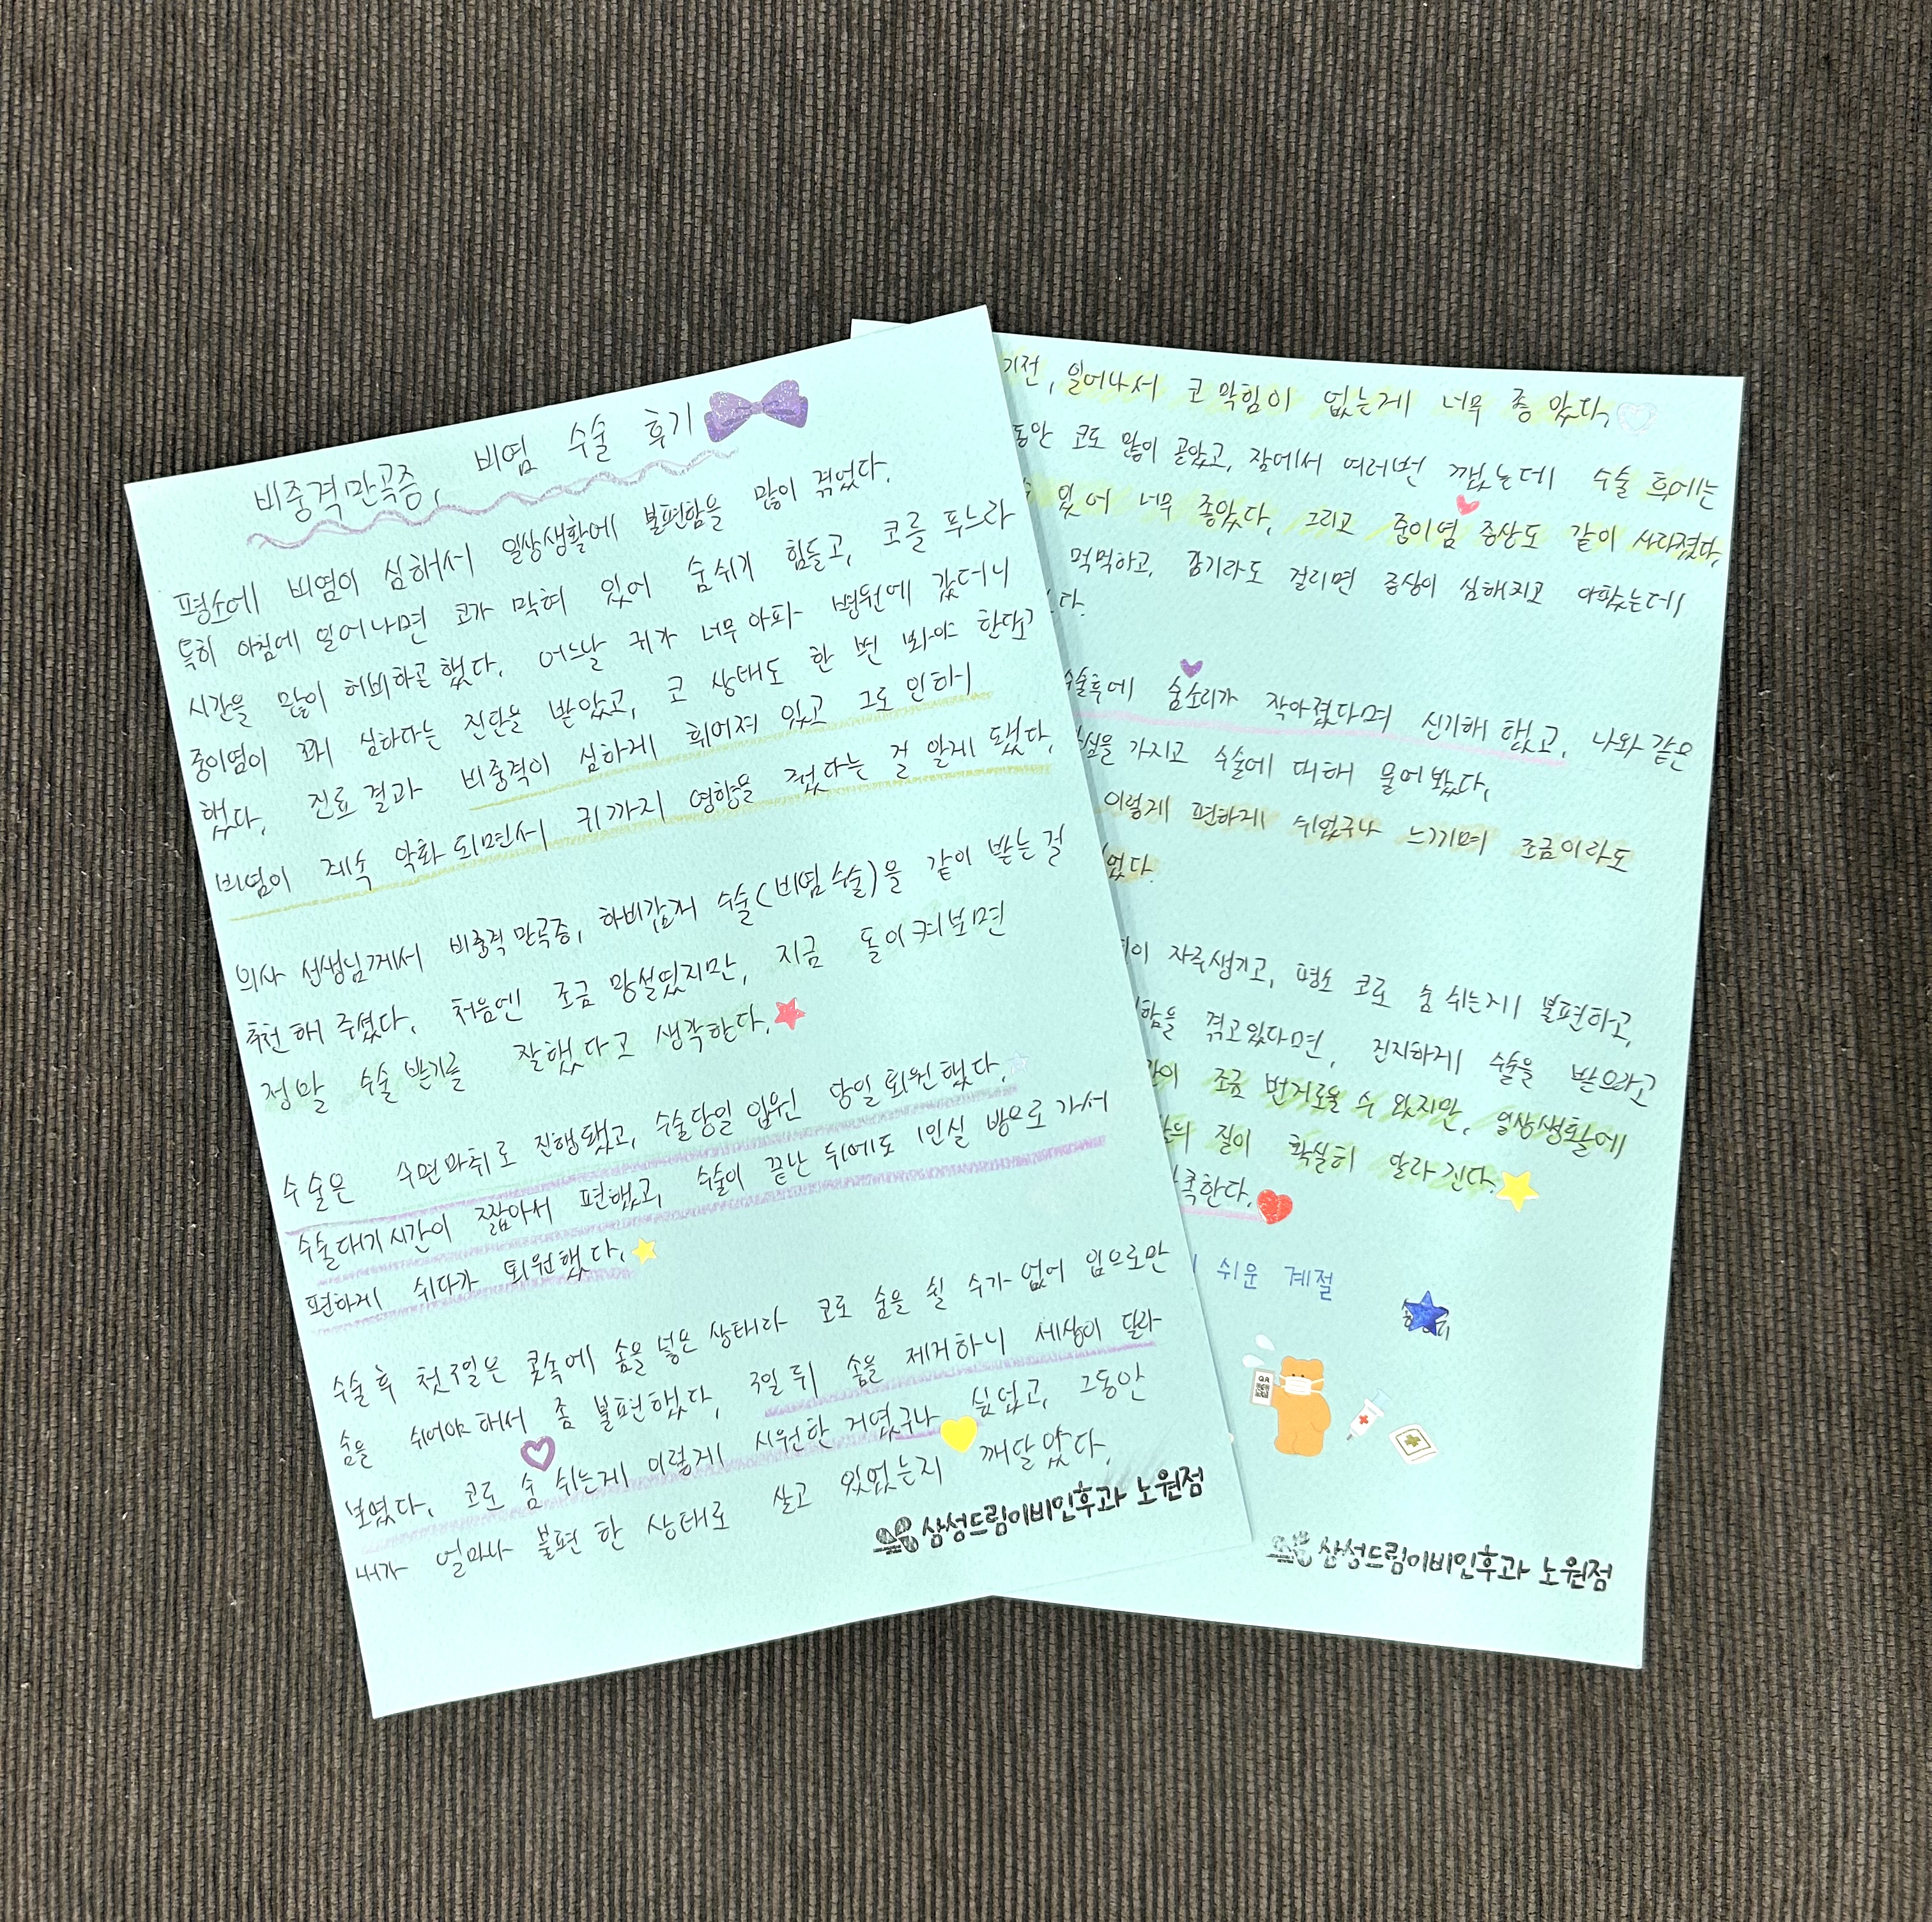 비중격만곡증, 비염 수술 후기
평소에 비염이 심해서 일상생활에 불편함을 많이 겪었다.
특히 아침에 일어나면 코가 막혀 있어 숨쉬기 힘들고, 코를 푸느라
시간을 많이 허비하곤 했다. 어느날 귀가 너무 아파 병원에 갔더니
중이염이 꽤 심하다는 진단을 받았고, 코 상태도 한 번 봐야 한다고
했다. 진료 결과 비중격이 심하게 휘어져 있고 그로 인해
비염이 계속 악화 되면서 귀까지 영향을 줬다는 걸 알게 됐다.
의사 선생님께서 비중격 만곡증, 하비갑개 수술(비염 수술)을 같이 받는 걸
추천 해 주셨다. 처음엔 조금 망설였지만, 지금 돌이켜보면
정말 수술 받기를 잘했다고 생각한다.
수술은 수면마취로 진행됐고, 수술당일 입원 당일 퇴원했다.
수술대기 시간이 짧아서 편했고, 수술이 끝난 뒤에도 1인실 방으로 가서
편하게 쉬다가 퇴원했다.
수술 후 첫 3일은 콧속에 솜을 넣은 상태라 코로 숨을 쉴 수가 없어 입으로만
숨을 쉬어야 해서 좀 불편했다. 3일 뒤 솜을 제거하니 세상이 달라
보였다. 코로 숨 쉬는게 이렇게 시원한 거였구나 싶었고, 그동안
내가 얼마나 불편 한 상태로 살고 있었는지 깨달았다.
삼성드림이비인후과 노원점
기전, 일어나서 코 막힘이 없는게 너무 좋았다.
동안 코도 많이 골았고, 잠에서 여러번 깼는데 수술 후에는
있어 너무 좋았다. 그리고 중이염 증상도 같이 사라졌다.
먹먹하고, 감기라도 걸리면 증상이 심해지고 아팠는데
다.
수술후에 숨소리가 작아졌다며 신기해 했고, 나와 같은
심을 가지고 수술에 대해 물어봤다.
이렇게 편하게 쉬었구나 느끼며 조금이라도
었다.
이 자주생기고, 평소 코로 숨 쉬는게 불편하고,
함을 겪고있다면, 진지하게 수술을 받으라고
이 조금 번거로울 수 있지만, 일상생활에
의 질이 확실히 달라진다.
족한다.
쉬운 계절
QR
삼성드림이비인후과 노원점